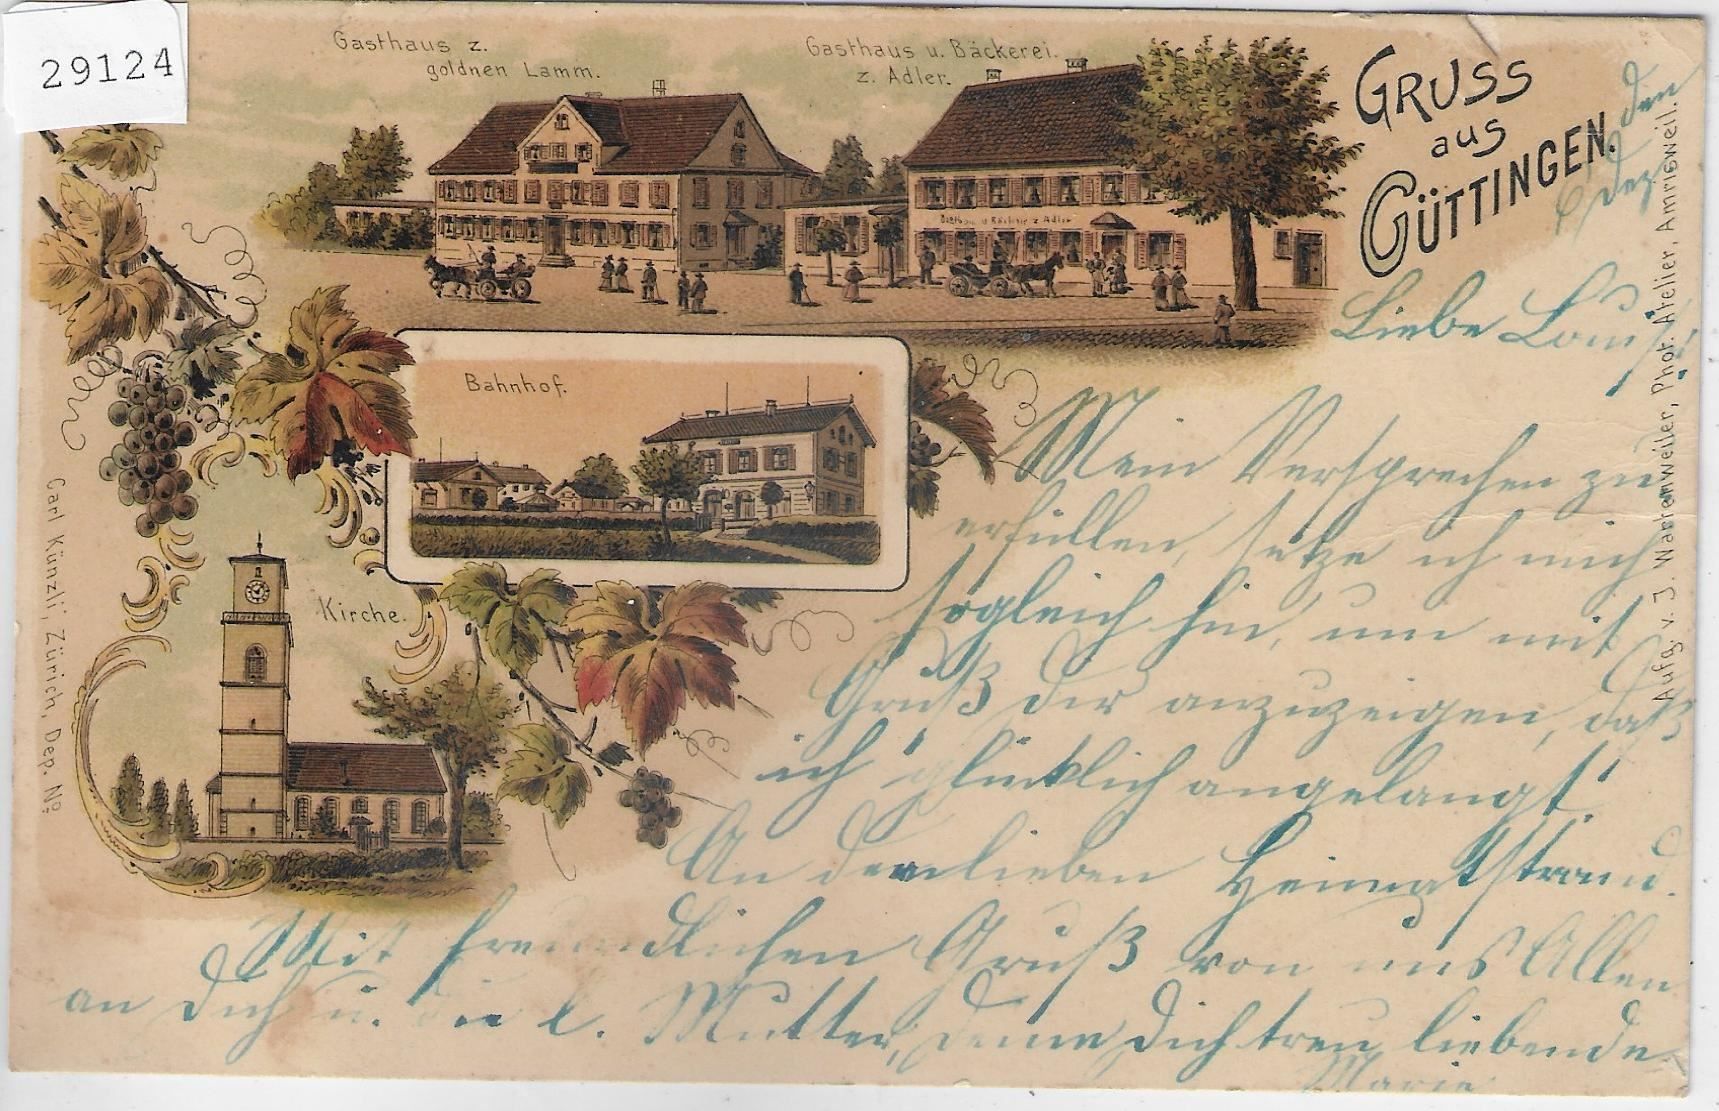 29124
Gasthaus z.
goldnen Lamm.
Gasthaus u. Bäckerei.
z. Adler.
Gasthaus u. Bäckerei z. Adler
GRUSS
aus
GÜTTINGEN.
den
6 Dez.
Aufg. v. J. Warrenweiler, Phot. Atelier, Amrisweil.
Bahnhof.
Kirche.
Carl Künzli, Zürich, Dep. No.
Liebe
Mein Versprechen zu
erfüllen, setze ich mich
sogleich hin, um mit
Gruß dir anzuzeigen, daß
ich glücklich angelangt
An dem lieben Heimatstrand.
Mit freundlichen Gruß von uns Allen
an Dich u. die l. Mutter, Deine Dich treu liebende
Marie